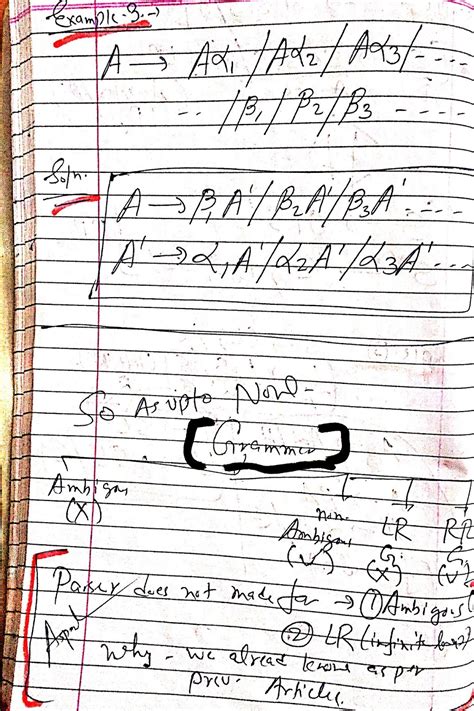 Example-3.→
A → Aα1 / Aα2 / Aα3 / ....
.. / β1 / β2 / β3 ....
Soln.
A → β1A' / β2A' / β3A' ....
A' → α1A' / α2A' / α3A' ...
So As upto Now-
[Grammer]
Ambigous (X)
non Ambigous (√)
LR G. (X)
RR G. (√)
Parser does not made for → ① Ambigous
② LR (infinite loop)
Why - we already know as per
prev. Articles.